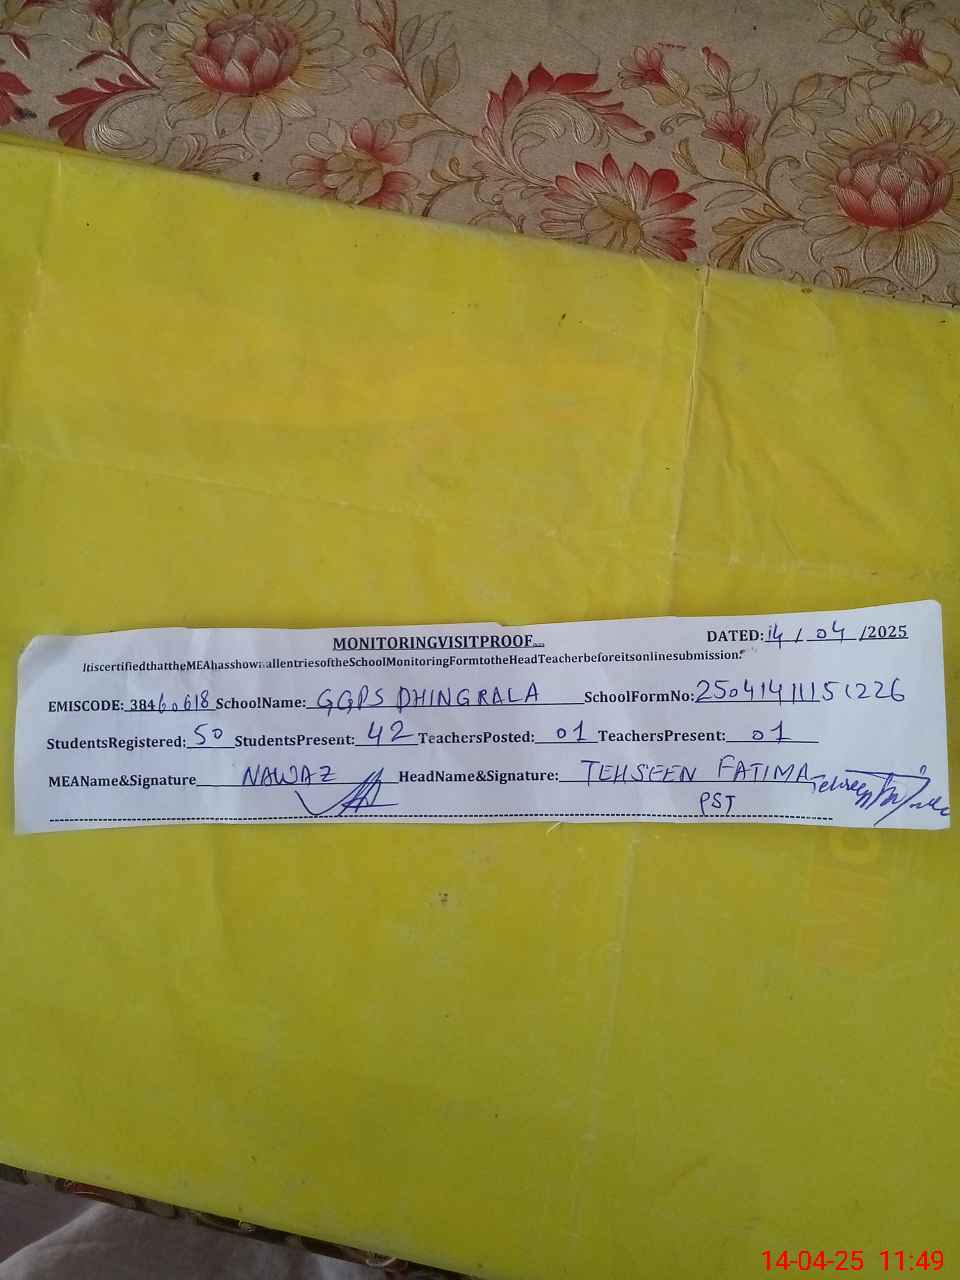 MONITORINGVISITPROOF
DATED: 14 / 04 /2025
ItiscertifiedthattheMEAhasshownallentriesoftheSchoolMonitoringFormtotheHeadTeacherbeforeitsonlinesubmission.
EMISCODE: 38460618 SchoolName: GGPS DHINGRALA SchoolFormNo: 25041411151226
StudentsRegistered: 50 StudentsPresent: 42 TeachersPosted: 01 TeachersPresent: 01
MEAName&Signature NAWAZ HeadName&Signature: TEHSEEN FATIMA
PST
14-04-25 11:49